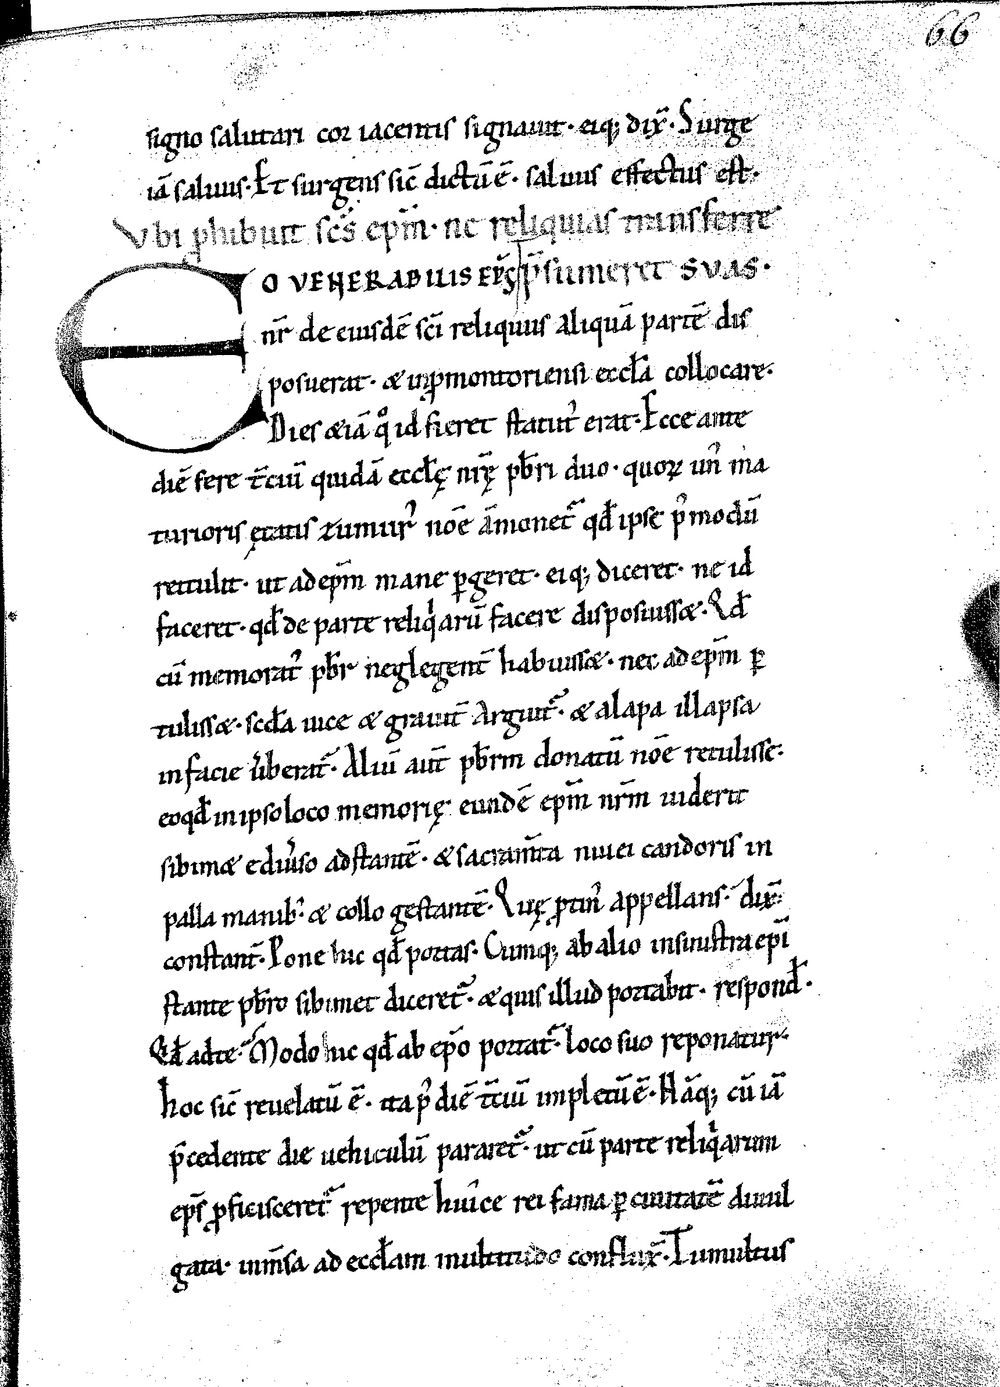 66
signo salutari cor iacentis signauit· eiq; dix̄· Surge
iā saluus· Et surgens sic̄ dictū ē· saluus effectus est·
Vbi ꝓhibuit sc̄s ep̄m· ne reliquias transferre
EO VENERABILIS EP̄S p̄sumeret SVAS·
nr̄ de eiusdē sc̄i reliquiis aliquā partē dis
posuerat· & inꝓmontoriensi eccl̄a collocare·
Dies & iā qͦ id fieret statutꝰ erat· Ecce ante
diē fere t̄ciū quidā eccl̄ę nr̄ę pb̄ri duo· quoꝝ unꝰ ma
turioris ętatis noē āmonet᷑ qd̄ ipse pꝰmodū
rettulit· ut ad ep̄m mane ꝑgeret· eiq; diceret· ne id
faceret· qd̄ de parte reliqͥarū facere disposuiss&· Qd̄
cū memoratꝰ pb̄r neglegent̄ habuiss&· nec ad ep̄m ꝑ
tuliss&· scd̄a uice & grauit̄ Arguit᷑· & alapa illapsa
in facie u̓berat᷑· Aliū aut̄ pb̄rm donatū noē retulisse·
eo qd̄ in ipso loco memorię· eundē ep̄m nr̄m uiderit
sibim& e diu̓so adstantē· & sacram̄ta niuei candoris in
palla manibꝰ· & collo gestantē· Quę ꝓtinꝰ appellans· dix̄·
constant̄· Pone huc qd̄ portas· Cumq; ab alio insinistra ep̄i
stante pb̄ro sibimet diceret᷑· & quis illud portabit· respond̄·
Qd̄ ad te· Modo huc qd̄ ab ep̄o portat᷑· loco suo reponatur·
hoc sic̄ reuelatū ē· ita pꝰ diē t̄ciū impletū ē· Nāq; cū iā
p̄cedente die uehiculū pararet᷑· ut cū parte reliqͥarum
ep̄s ꝓficisceret᷑ repente hui̓ce rei fama ꝑ ciuitatē diuul
gata· inm̄sa ad eccl̄am multitudo conflux̄· Tumultus